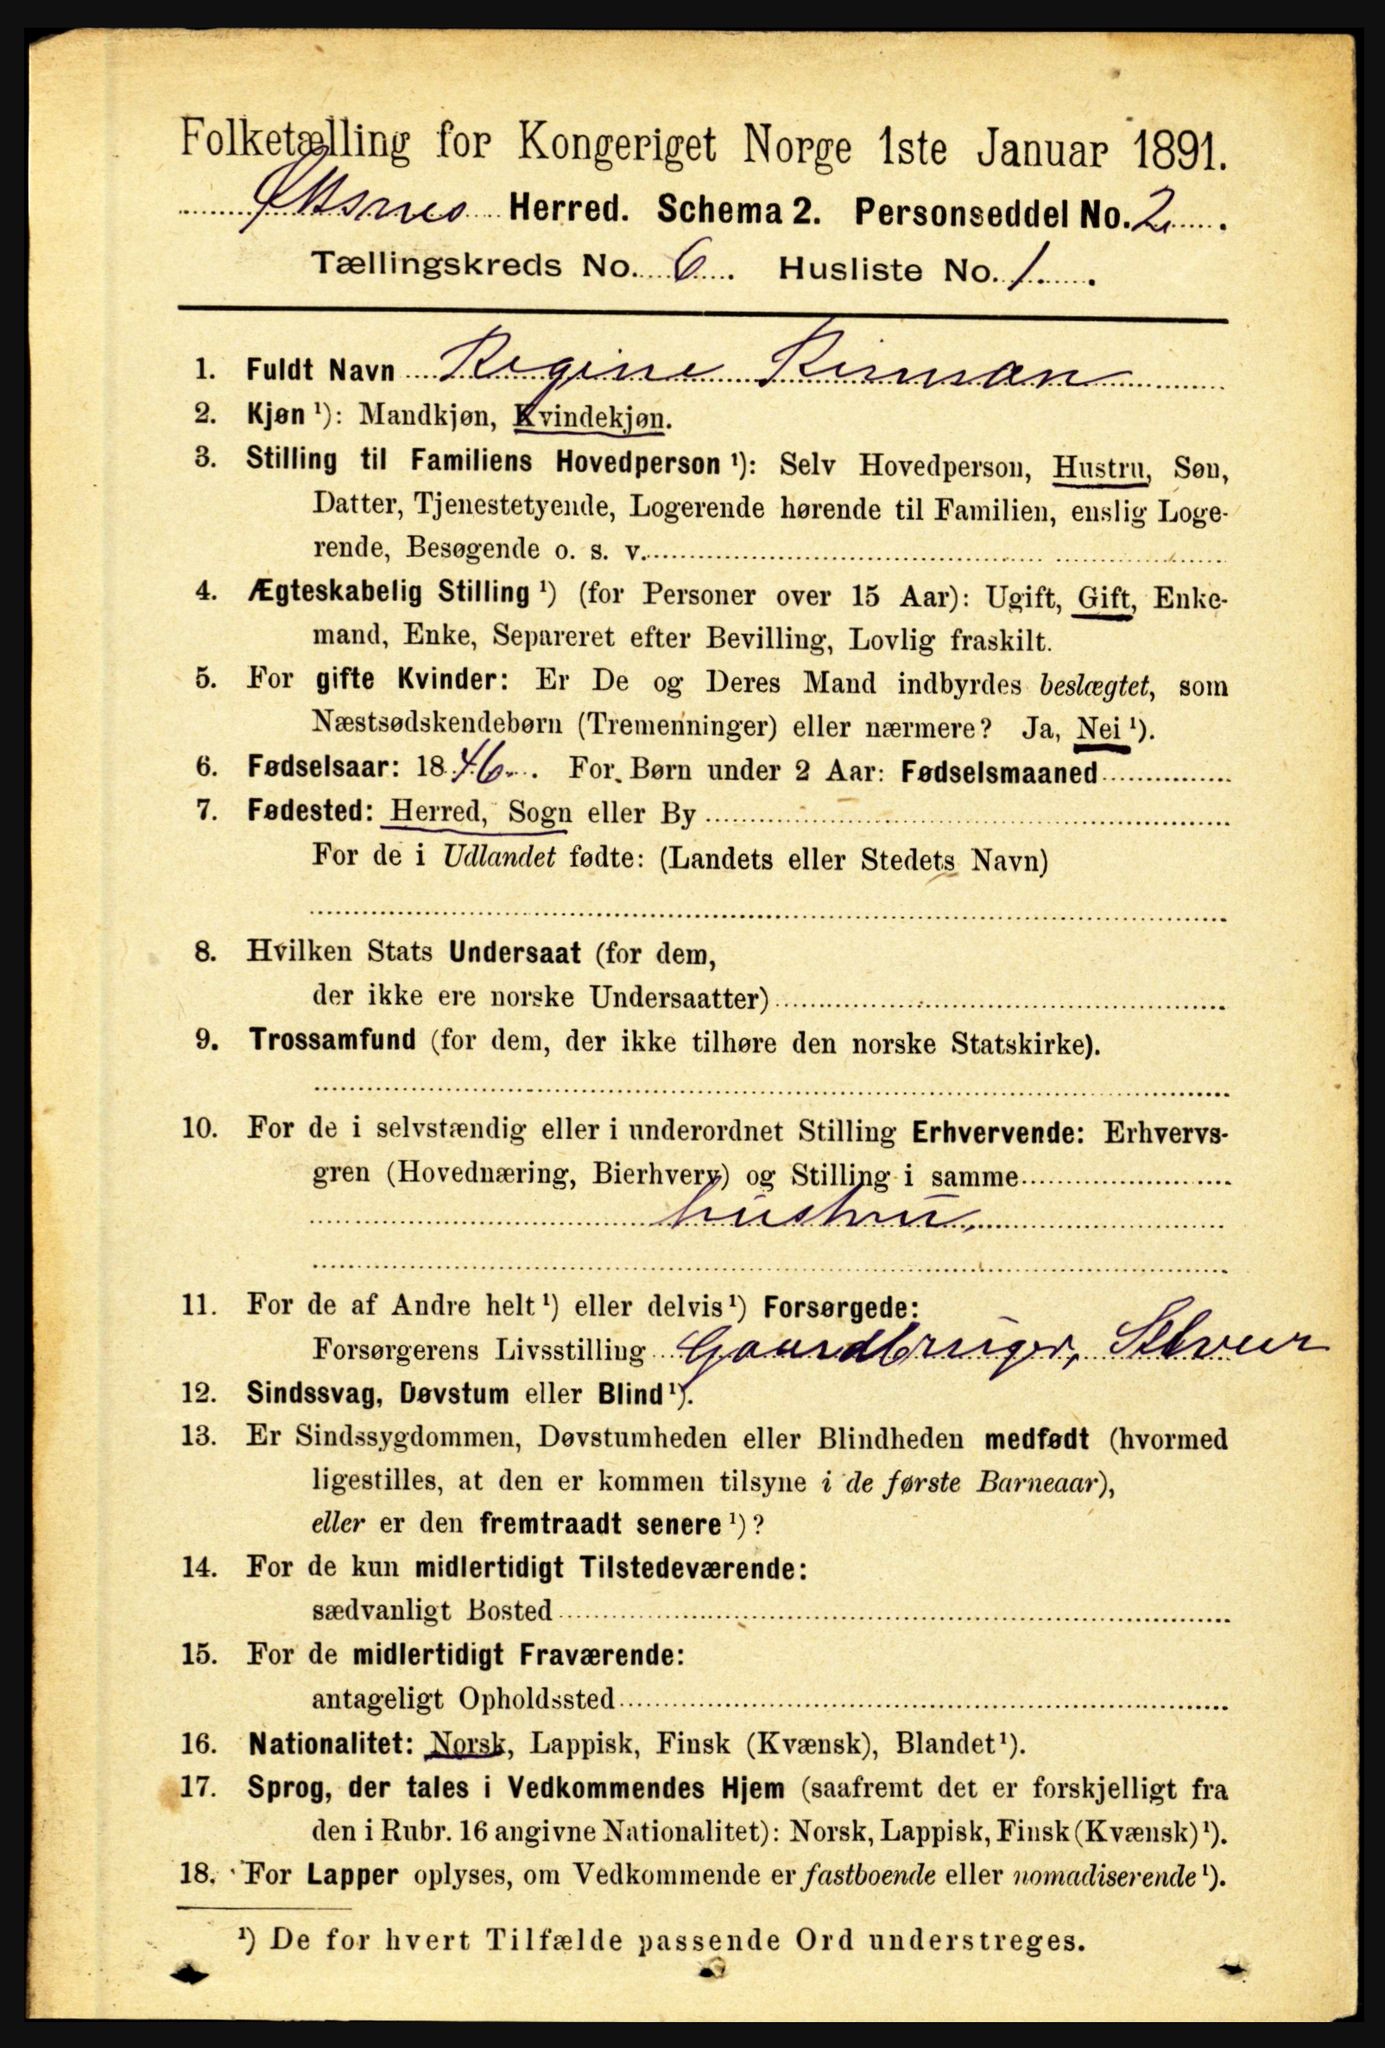 Folketælling for Kongeriget Norge 1ste Januar 1891.
Herred. Schema 2. Personseddel No. 2.
Tællingskreds No. 6. Husliste No. 1.
1. Fuldt Navn Regine
2. Kjøn ¹): Mandkjøn, Kvindekjøn.
3. Stilling til Familiens Hovedperson ¹): Selv Hovedperson, Hustru, Søn,
Datter, Tjenestetyende, Logerende hørende til Familien, enslig Loge-
rende, Besøgende o. s. v.
4. Ægteskabelig Stilling ¹) (for Personer over 15 Aar): Ugift, Gift, Enke-
mand, Enke, Separeret efter Bevilling, Lovlig fraskilt.
5. For gifte Kvinder: Er De og Deres Mand indbyrdes beslægtet, som
Næstsødskendebørn (Tremenninger) eller nærmere? Ja, Nei ¹).
6. Fødselsaar: 1846. For Børn under 2 Aar: Fødselsmaaned
7. Fødested: Herred, Sogn eller By
For de i Udlandet fødte: (Landets eller Stedets Navn)
8. Hvilken Stats Undersaat (for dem,
der ikke ere norske Undersaatter)
9. Trossamfund (for dem, der ikke tilhøre den norske Statskirke).
10. For de i selvstændig eller i underordnet Stilling Erhvervende: Erhvervs-
gren (Hovednæring, Bierhverv) og Stilling i samme
hustru,
11. For de af Andre helt ¹) eller delvis ¹) Forsørgede:
Forsørgerens Livsstilling Gaardbruger, Selveier
12. Sindssvag, Døvstum eller Blind ¹).
13. Er Sindssygdommen, Døvstumheden eller Blindheden medfødt (hvormed
ligestilles, at den er kommen tilsyne i de første Barneaar),
eller er den fremtraadt senere ¹)?
14. For de kun midlertidigt Tilstedeværende:
sædvanligt Bosted
15. For de midlertidigt Fraværende:
antageligt Opholdssted
16. Nationalitet: Norsk, Lappisk, Finsk (Kvænsk), Blandet ¹).
17. Sprog, der tales i Vedkommendes Hjem (saafremt det er forskjelligt fra
den i Rubr. 16 angivne Nationalitet): Norsk, Lappisk, Finsk (Kvænsk) ¹).
18. For Lapper oplyses, om Vedkommende er fastboende eller nomadiserende ¹).
¹) De for hvert Tilfælde passende Ord understreges.